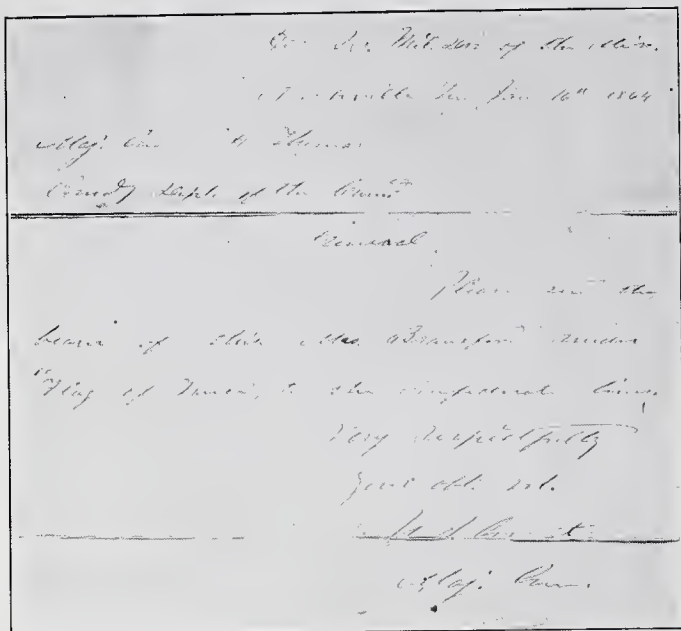 Hd. Qrs. Mil. Div. of the Miss.
Nashville Ten. Jan 16th 1864
Maj. Gen. G. H. Thomas
Comdg Dept. of the Cumbd
General,
Please send the
bearer of this Mrs. Bransford under
"Flag of Truce," to the Confederate lines.
Very respectfully
your obt. svt.
U. S. Grant
Maj. Gen.